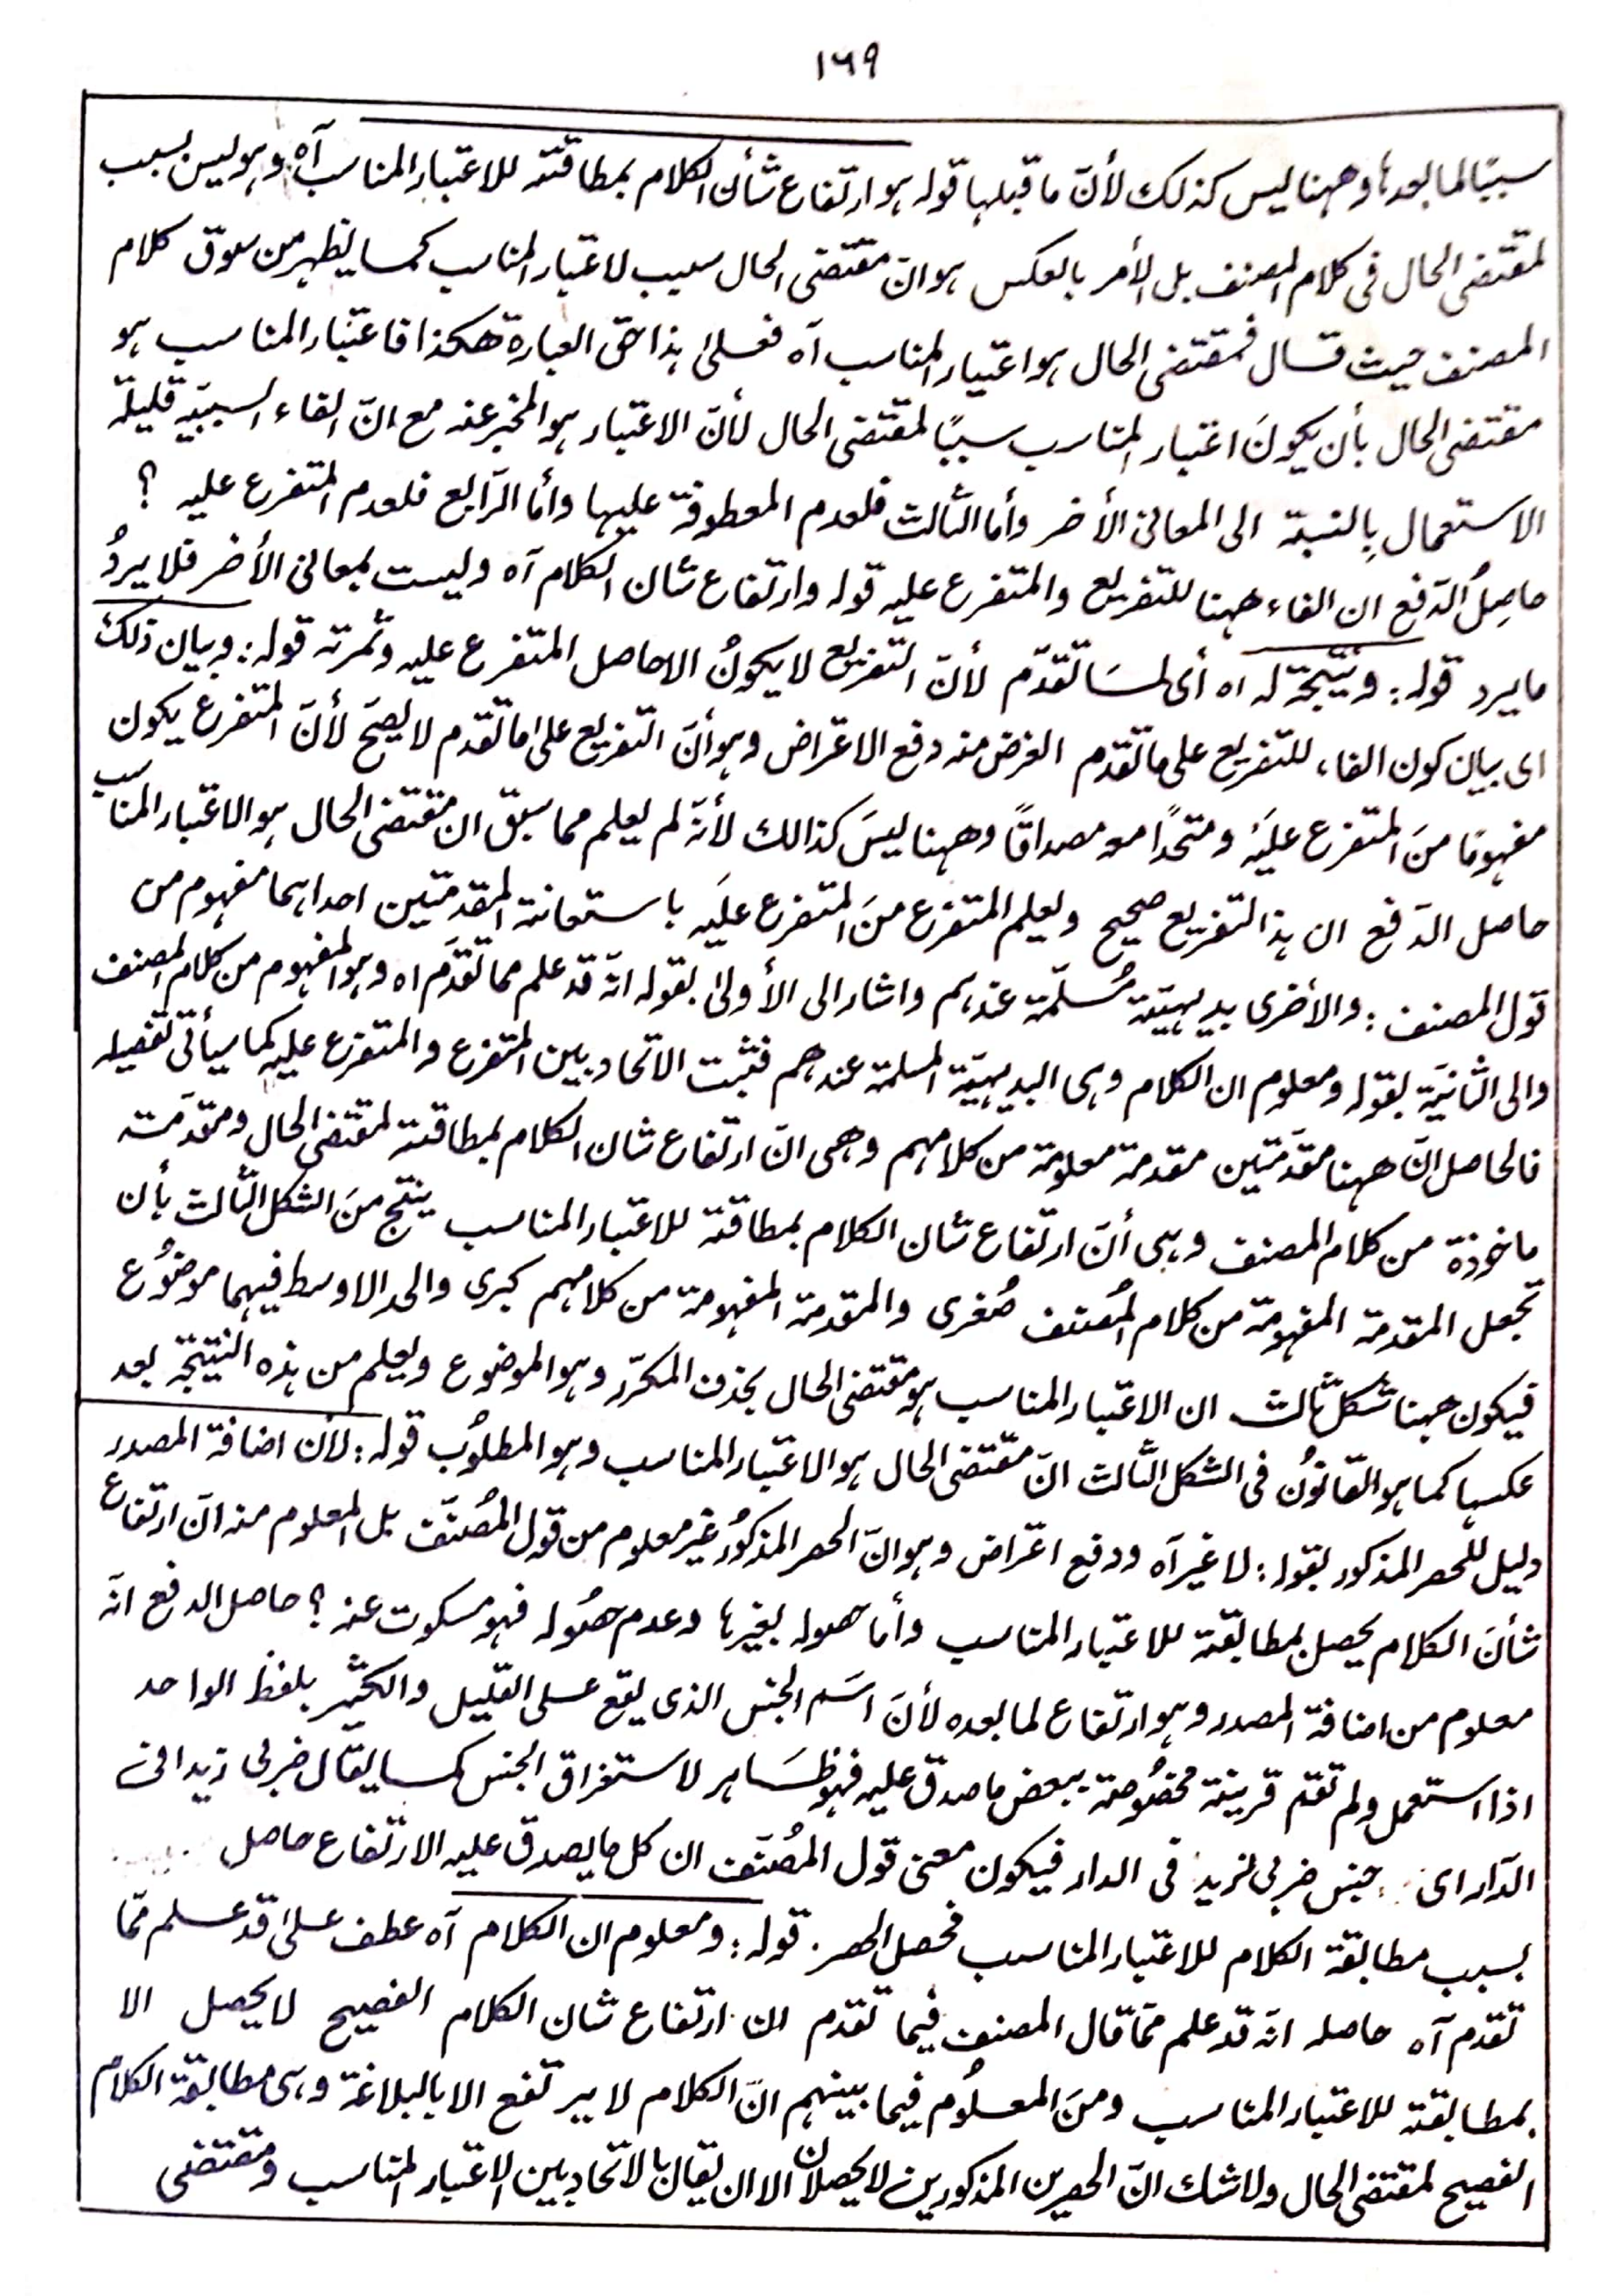 ١٦٩
سببًا لما بعدہا وھہنا لیس کذلک لأنّ ما قبلہا قولہ ہو ارتفاع شأن الکلام بمطاقتہ للاعتبار المناسب آہ وہو لیس بسبب
لمقتضی الحال فی کلام المصنف بل الأمر بالعکس ہو انّ مقتضی الحال سبب لاعتبار المناسب کما یظہر من سوق کلام
المصنف حیث قال فمقتضی الحال ہو اعتبار المناسب آہ فعلیٰ ہذا حق العبارۃ ھکذا فاعتبار المناسب ہو
مقتضی الحال بأن یکونَ اعتبار المناسب سببًا لمقتضی الحال لأنّ الاعتبار ہو المخبر عنہ مع انّ الفاء السببیّہ قلیلۃ
الاستعمال بالنسبۃ الی المعانی الأخر وأما الثالث فلعدم المعطوفۃ علیہا وأما الرّابع فلعدم المتفرع علیہ ؟
حاصِلُ الدّفع ان الفاء ھہنا للتفریع والمتفرع علیہ قولہ وارتفاع شان الکلام آہ ولیست بمعانی الأخر فلا یردُ
مایرد قولہ: ونتیجۃ لہ اہ أی لمَا تقدّم لأنّ التفریع لا یکونُ الاحاصل المتفرع علیہ وثمرتہ قولہ: وبیان ذلک
ای بیان کون الفاء للتفریع علی ما تقدم الغرض منہ دفع الاعتراض وہو أنّ التفریع علیٰ ما تقدم لا یصحَ لأنّ المتفرع یکون
مفہومًا منَ المتفرع علیَہ ومتحدًا معہ مصداقًا وھہنا لیسَ کذالک لأنّہ لم یعلم مما سبق ان مقتضی الحال ہو الاعتبار المناسب
حاصل الدّفع ان ہذا التفریع صحیح ویعلم المتفرع منَ المتفرع علیَہ باستعانۃ المقدمتین احداہما مفہوم من
قول المصنف: والأخری بدیہیّۃ مُسلّمۃ عندہم واشار الی الأولیٰ بقولہ انّہ قد علم مما تقدّم اہ وہو المفہوم من کلام المصنف
والی الثانیَۃ بقولہ ومعلوم ان الکلام وہی البدیہیّۃ المسلمۃ عندھم فثبت الاتحاد بین المتفرع والمتفرع علیہ کما سیأتی تفصیلہ
فالحاصل انّ ھہنا مقدّمتین مقدمۃ معلومۃ من کلامہم وھی انّ ارتفاع شان الکلام بمطاقتہ لمقتضی الحال ومقدّمۃ
ماخوذۃ من کلام المصنف وہی أنّ ارتفاع شان الکلام بمطاقتہ للاعتبار المناسب ینتج منَ الشکل الثّالث بأن
تجعل المقدمۃ المفہومۃ من کلام المُصنف صُغری والمقدمۃ المفہومۃ من کلامہم کبری والحد الاوسط فیہما موضوُع
فیکون ھہنا شکل ثالث ان الاعتبار المناسب ہو مقتضی الحال بحذف المکرّر وہو الموضوع ویعلم من ہذہ النتیجۃ بعد
عکسہا کما ہو القانونُ فی الشکل الثّالث انّ مقتضی الحال ہو الاعتبار المناسب وہو المطلوُب قولہ: لأن اضافۃ المصدر
دلیل للحصر المذکور بقولہ: لا غیر آہ ودفع اعتراض وہو انّ الحصر المذکورُ غیر معلوم من قول المُصنّف بل المعلوم منہ انّ ارتفاع
شأنَ الکلام یحصل بمطابقتہ للاعتبار المناسب وأما حصولہ بغیرہا وعدم حصُولہ فہو مسکوت عنہ؟ حاصل الدفع انّہ
معلوم من اضافۃ المصدر وہو ارتفاع لما بعدہ لأنَ اسَم الجنس الذی یقع علی القلیل والکثیر بلفظ الواحد
اذا استعمل ولم تقم قرینۃ مخصُوصۃ ببعض ما صدق علیہ فہو ظاہر لاستغراق الجنس کما یقال ضربی زیدا فی
الدّار ای جنس ضربی لزید فی الدار فیکون معنی قول المُصنّف ان کل ما یصدق علیہ الارتفاع حاصل
بسبب مطابقۃ الکلام للاعتبار المناسب فحصل الحصر. قولہ: ومعلوم ان الکلام آہ عطف علیٰ قد علم ممّا
تقدم آہ حاصلہ انّہ قد علم ممّا قال المصنف فیما تقدم ان ارتفاع شان الکلام الفصیح لا یحصل الا
بمطابقتہ للاعتبار المناسب ومنَ المعلُوم فیما بینہم انّ الکلام لا یرتفع الا بالبلاغۃ وہی مطابقۃ الکلام
الفصیح لمقتضی الحال ولا شک انّ الحصرین المذکورین لا یحصلان الا ان یقال بالاتحاد بین الاعتبار المناسب ومقتضی